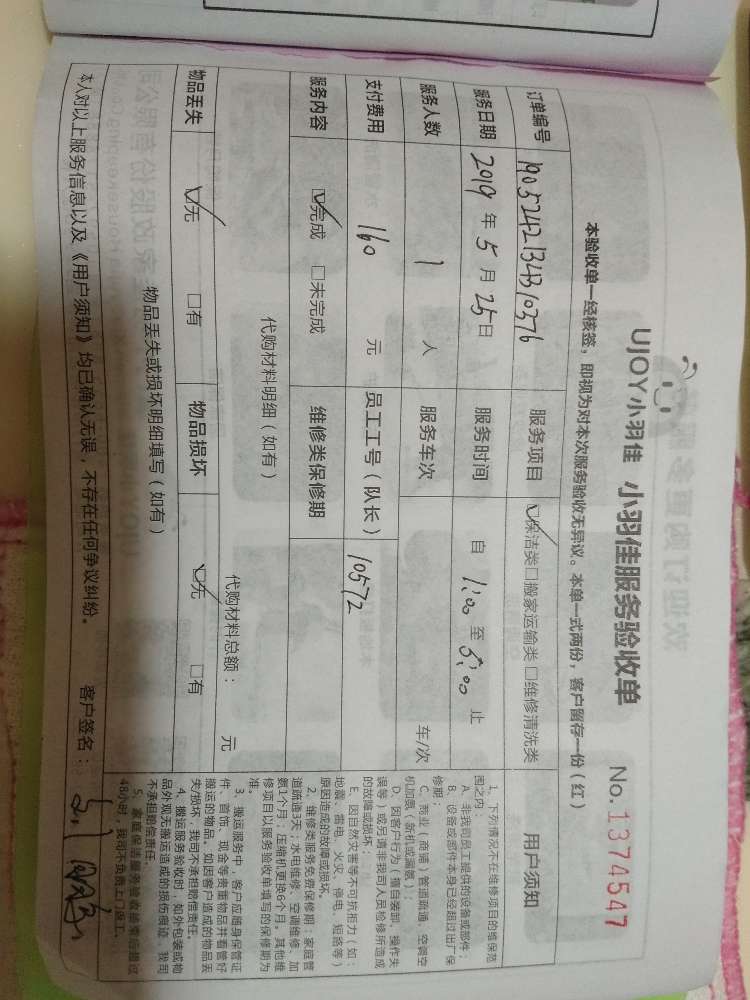 UJOY小羽佳 小羽佳服务验收单 No.1374547
本验收单一经核签，即视为对本次服务验收无异议。本单一式两份，客户留存一份（红）
订单编号 1905242134310376 服务项目 ☑保洁类□搬家运输类□维修清洗类
服务日期 2019年5月25日 服务时间 自1:00至5:00止
服务人数 1人 服务车次 车/次
支付费用 160元 员工工号（队长） 10572
服务内容 ☑完成 □未完成 维修类保修期
代购材料明细（如有）
代购材料总额： 元
物品丢失 ☑无 □有 物品损坏 ☑无 □有
物品丢失或损坏明细填写（如有）
本人对以上服务信息以及《用户须知》均已确认无误，不存在任何争议纠纷。 客户签名：
用户须知
1、下列情况不在维修项目的维保范
围之内：
A、非我司员工提供的设备或部件；
B、设备或部件本身已经超过出厂保
修期；
C、商业（商铺）管道疏通、空调空
机加氨（新机或漏氨）；
D、因客户行为（擅自装卸、操作失
误等）或另请非我司人员检修所造成
的故障或损坏；
E、因自然灾害等不可抗拒力（如：
地震、雷电、火灾、停电、短路等）
原因连成的故障或损坏。
2、维修类服务免费保修期：家庭管
道疏通3天；水电维修、空调维修、加
氨1个月；压缩机更换6个月。其他维
修项目以服务验收单填写的保修期为
准。
3、搬运服务中，客户应随身保管证
件、首饰、现金等贵重物品并看管好
搬运的物品。如因客户造成的物品丢
失/损坏，我司不承担赔偿责任。
4、搬运服务验收时，如外包装或物
品外观无搬运造成的损伤痕迹，我司
不承担赔偿责任。
5、家庭保洁服务验收
48小时，我司不负责上门返工。